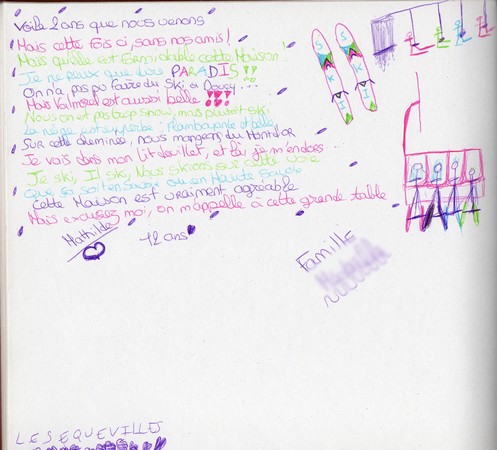 Voila 2 ans que nous venons
Mais cette fois ci, sans nos amis!
Mais quelle est formidable cette Maison!
Je ne peux que dire PARADIS!!
On n'a pas pu faire du Ski a
Mais Valmorel est aussi belle !!!
Nous on est pas trop snow, mais plutôt ski
La neige est superbe: flamboyante et belle,
SUR cette cheminee, nous mangeons du Montdor
Je vois dans mon lit douillet, et là, je m'endors...
Je ski, Il ski, Nous skions sur cette voie
Que sa soit en Savoie ou en Haute Savoie
Cette Maison est vraiment agréable
Mais excusez moi, on m'appelle à cette grande table
Mathilde
12 ans
Famille
SKI
SKI
LES EQUEVILLES